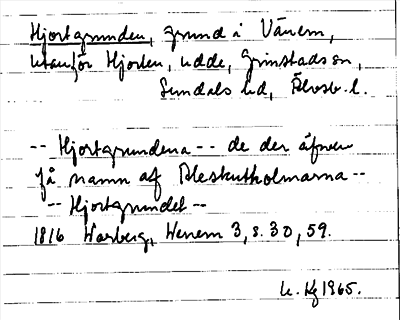 Hjortgrunden, grund i Vänern,
utanför Hjorten, udde, Grinstads sn,
Sundals hd, Älvsb. l.
-- Hjortgrundena -- de der äfven
få namn af Bleskutholmarna --
-- Hjortgrundet --
1816 Warberg, Wenern 3, s. 30, 59.
1965.